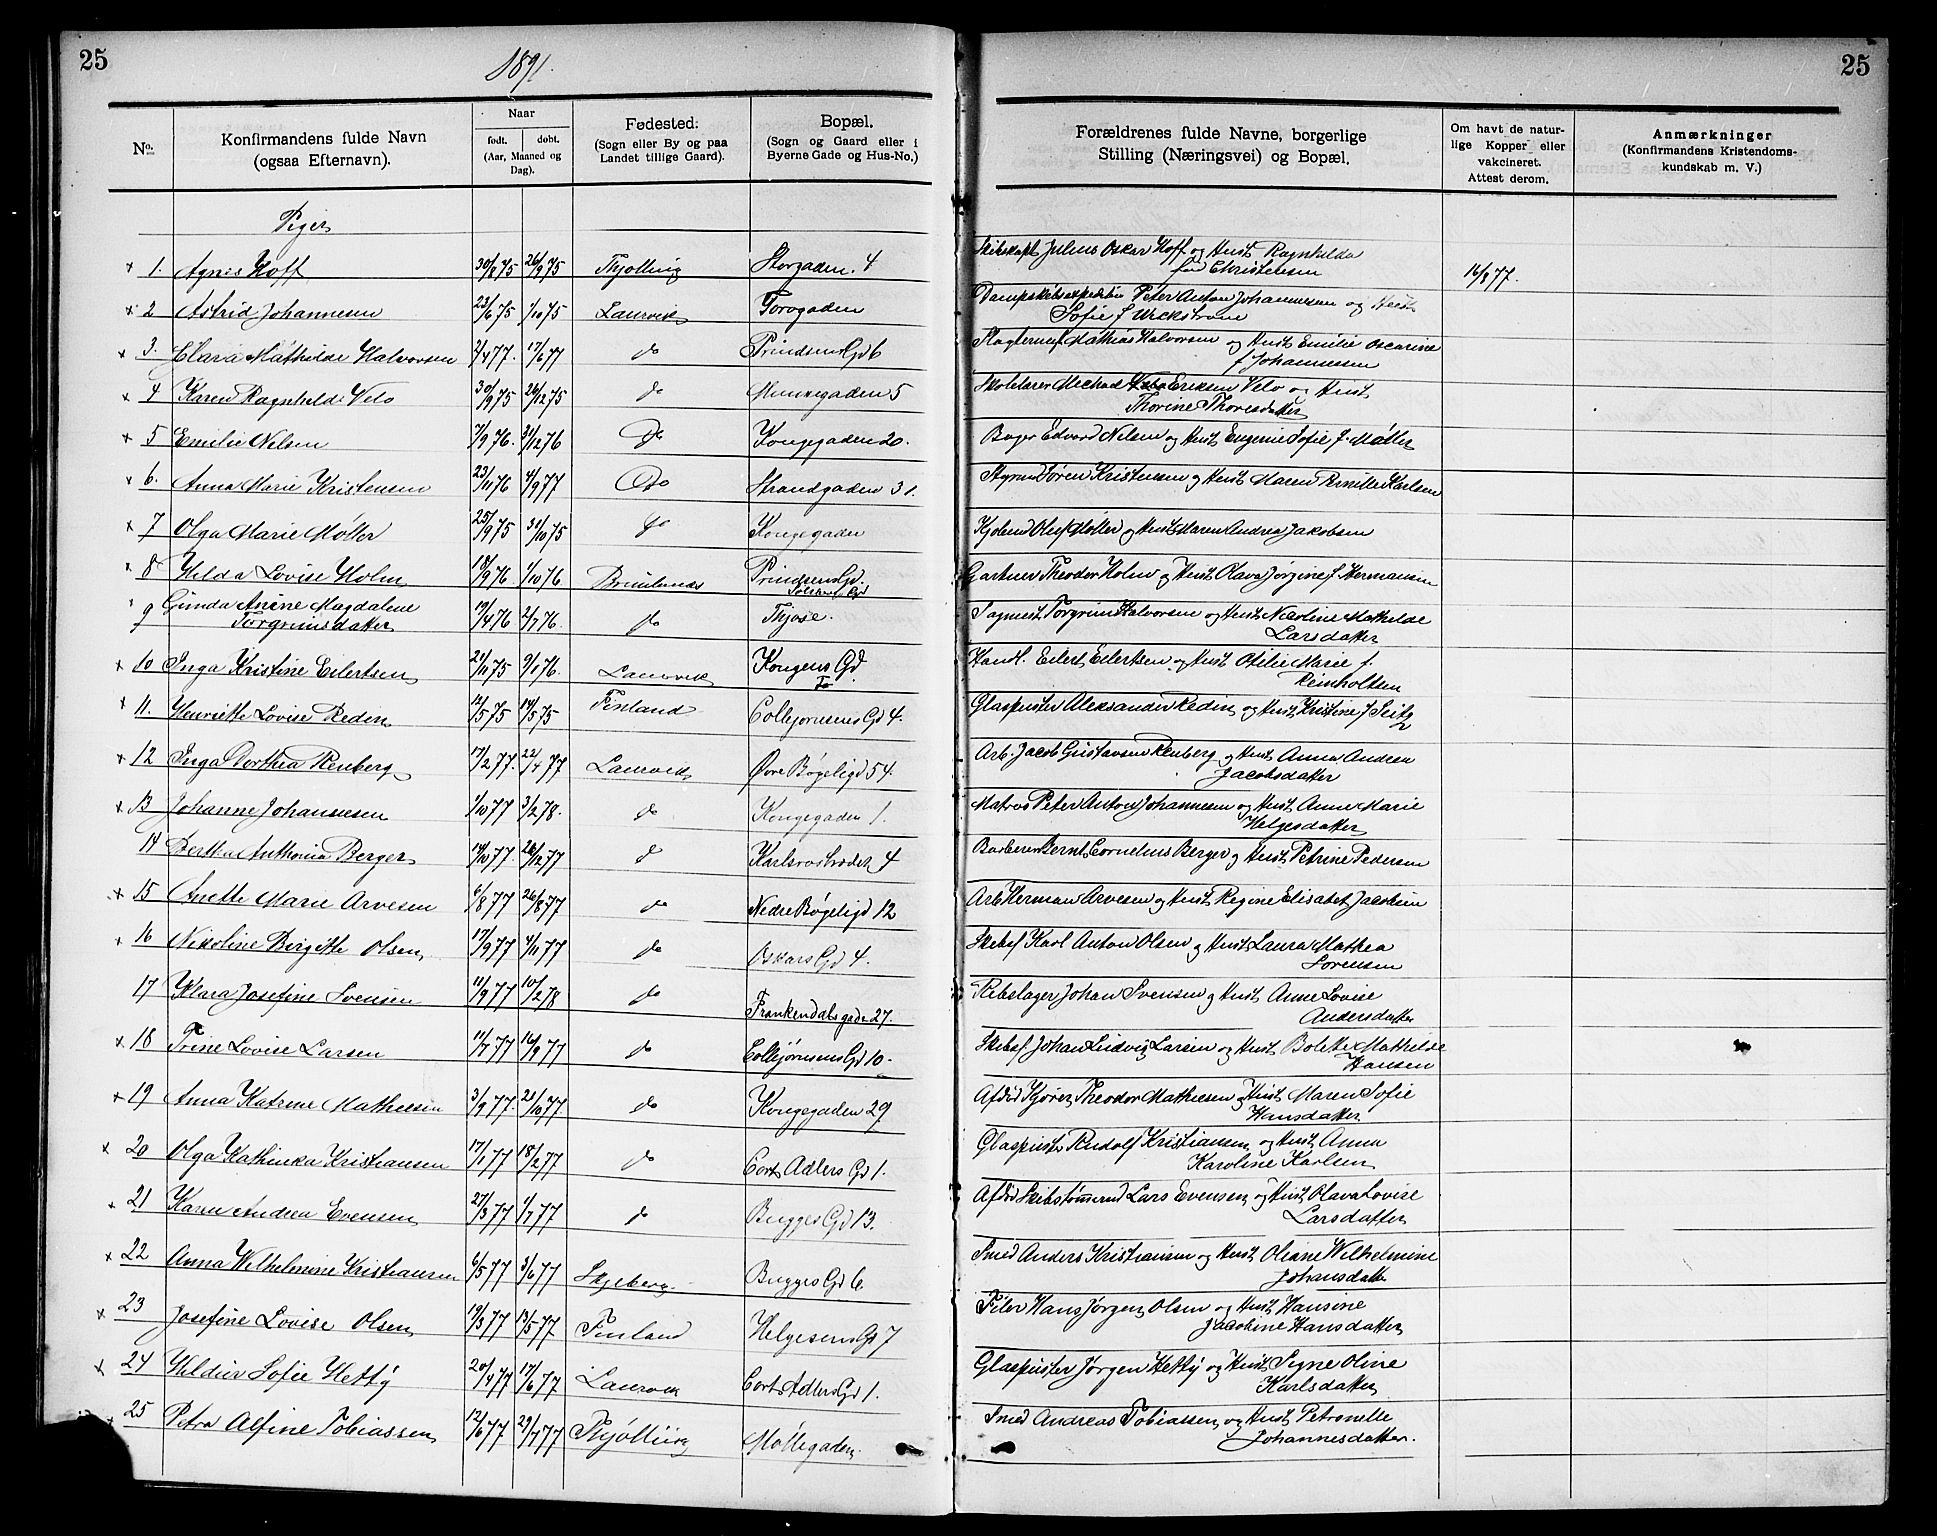 25
1891.
25
No.
Konfirmandens fulde Navn
(ogsaa Efternavn).
Naar
født.
døbt.
(Aar, Maaned og
Dag).
Fødested:
(Sogn eller By og paa
Landet tillige Gaard).
Bopæl.
(Sogn og Gaard eller i
Byerne Gade og Hus-No.)
Forældrenes fulde Navne, borgerlige
Stilling (Næringsvei) og Bopæl.
Om havt de natur-
lige Kopper eller
vakcineret.
Attest derom.
Anmærkninger
(Konfirmandens Kristendoms-
kundskab m. V.)
Piger
x 1. Agnes Hoff 30/8 75 26/9 75 Thjølling Storgaden. 4 Skibskapt Julius Oskar Hoff og Hust Ragnhilda 16/8 77.
fød Christensen
x 2 Astrid Johannesen 23/6 75 1/10 75 Laurvik Torvgaden Dampskibsexpeditør Peter Anton Johannesen og Hust
Sofie f
x 3. Clara Mathilde Halvorsen 2/4 77. 17/6 77 do Prindsens Gd 6 Mathias Halvorsen og Hust Emilie Oscarine
f Johannesen
x 4 Karen Ragnhilde Velo 30/9 75 26/12 75 do Munkegaden 5 Skolelærer Michael Eriksen Velo og Hust
Thorine Thoresdatter
x 5 Emilie Nilsen 7/9 76. 31/12 76 Do Kongegaden 20. Bager Edvard Nilsen og Hust Eugenie Sofie f. Møller
x 6. Anna Marie Kristensen 23/11 76 4/9 77 Do Strandgaden 31. Styrmd Søren Kristensen og Hust Maren Pernille Karlsen
x 7 Olga Marie Møller 25/9 75 31/10 75 do Kongegaden Kjøbmd Oluf Møller og Hust Maren Andrea Jakobsen
x 8 Hilda Lovise Holm 18/9 76 1/10 76 Brunlanes Prindsens Gd. Gartner Theodor Holm og Hust Olava Jørgine f Hermansen
9 Gunda Anine Magdalene
Torgrimsdatter 19/4 76 2/7 76. do Thjose. Sagmest Torgrim Halvorsen og Hust Nicoline Mathilde
Larsdatter
x 10 Inga Kristine Eilertsen 21/11 75 9/1 76. Laurvik Kongens Gd. Handl. Eilert Eilertsen og Hust Otilie Marie f.
Reinholtsen
x 11. Henriette Lovise Redin 12/5 75 14/5 75 Finland Collejørnsens Gd 4. Glaspuster Aleksander Redin og Hust Kristine f Seitz
x 12 Inga Dorthea Renberg 17/2 77. 22/4 77 Laurvik Øvre Bøgeligd 54. Arb. Jacob Gustavsen Renberg og Hust Anna Andrea
Jacobsdatter
x 13 Johanne Johannesen 1/10 77 3/2 78. do Kongegaden 1. Matros Peter Anton Johannesen og Hust Anne Marie
Helgesdatter
14 Berthe Anthonia Berger 14/10 77. 26/12 77 do 4 Barberer Bernt Cornelius Berger og Hust Petrine Pedersen
x 15 Anette Marie Arvesen 6/8 77 26/8 77 do Nedre Bøgeligd 12 Arb Herman Arvesen og Hust Regine Elisabet Jacobsen
x 16 Nikoline Birgitte Olsen 17/9 77 4/11 77 do Oskars Gd 4. Skibsf Karl Anton Olsen og Hust Laura Mathea
Sørensen
17 Klara Josefine Svensen 11/9 77 10/2 78 do Frankendalsgade 27. Rebslager Johan Svensen og Hust Anne Lovise
Andersdatter
x 18 Trine Lovise Larsen 11/7 77 16/9 77 do Collejørnsens Gd 10. Skibsf. Johan Ludvig Larsen og Hust Bolette Mathilde
Hansen
x 19 Anna Katrine Mathiesen 3/9 77. 21/10 77. do Kongegaden 29 Afdød Theodor Mathiesen og Hust Maren Sofie
Hansdatter
x 20 Olga Kathinka Kristiansen 17/1 77 18/2 77 do Cort Adlers Gd 1. Glaspuster Rudolf Kristiansen og Hust Anna
Karoline Karlsen
x 21 Karen Andrea Evensen 27/3 77 1/7 77 do Bugges Gd 13. Afdød Skibstømmermd Lars Evensen og Hust Olava Lovise
Larsdatter
x 22 Anna Wilhelmine Kristiansen 6/5 77 3/6 77 Skjeberg Bugges Gd 6 Smed Anders Kristiansen og Hust Oliane Wilhelmine
Johansdatter
x 23 Josefine Lovise Olsen 19/3 77 13/5 77. Finland Helgesens Gd 7 Filer Hans Jørgen Olsen og Hust Hansine
Jacobine Hansdatter
x 24 Hildur Sofie Hetty 20/4 77 17/6 77 Laurvik Cort Adlers Gd 1. Glaspuster Jørgen Hetty og Hust Signe Oline
Karlsdatter
x 25 Petra Alfine Tobiassen 12/6 77 29/7 77 Thjølling Møllegaden Smed Andreas Tobiassen og Hust Petronelle
Johannesdatter.